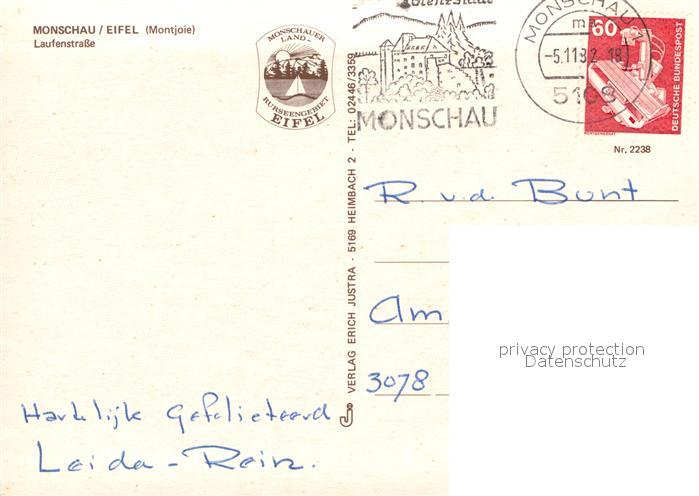 MONSCHAU / EIFEL (Montjoie)
Laufenstraße
MONSCHAUER
LAND
RURSEENGEBIET
EIFEL
MONSCHAU
MONSCHAU 2
ma
-5.11.82.18
5108
60
DEUTSCHE BUNDESPOST
Nr. 2238
VERLAG ERICH JUSTRA - 5169 HEIMBACH 2 - TEL: 02446/3359
R. v.d. Bunt
Am
3078
privacy protection
Datenschutz
Hartelijk Gefelieteerd
Leida - Rein.